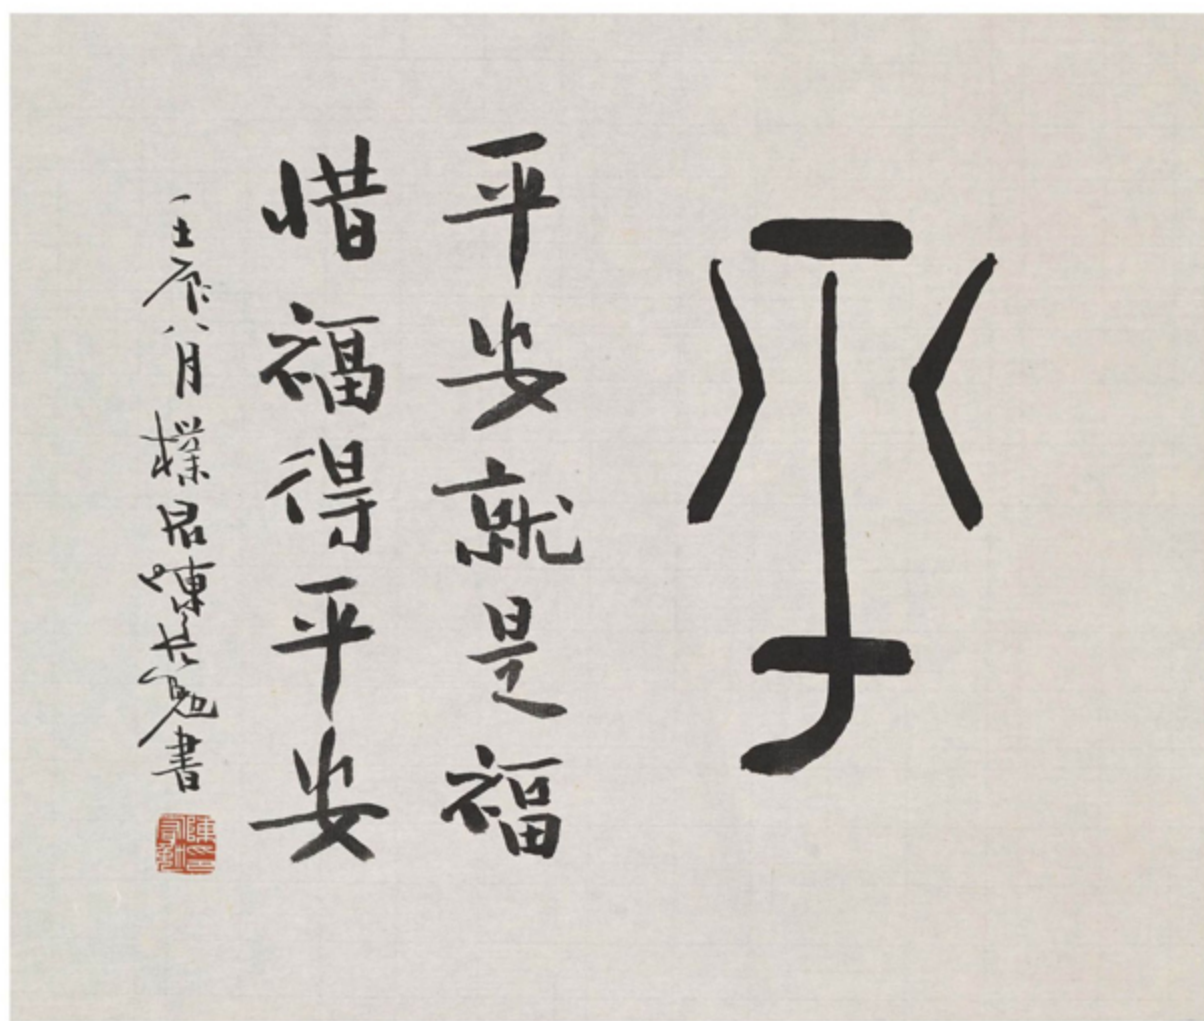 平
平安就是福
惜福得平安
壬辰八月樸居陳宏勉書